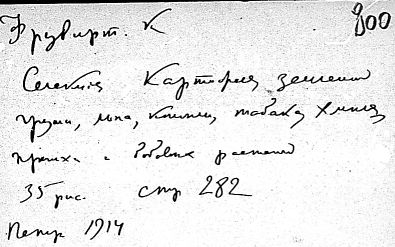 Фрувирт. К 800
Селекция Картофеля, земляной
груши, льна, конопли, табака, хмеля,
гречихи и бобовых растений
35 рис. стр 282
Петр 1914